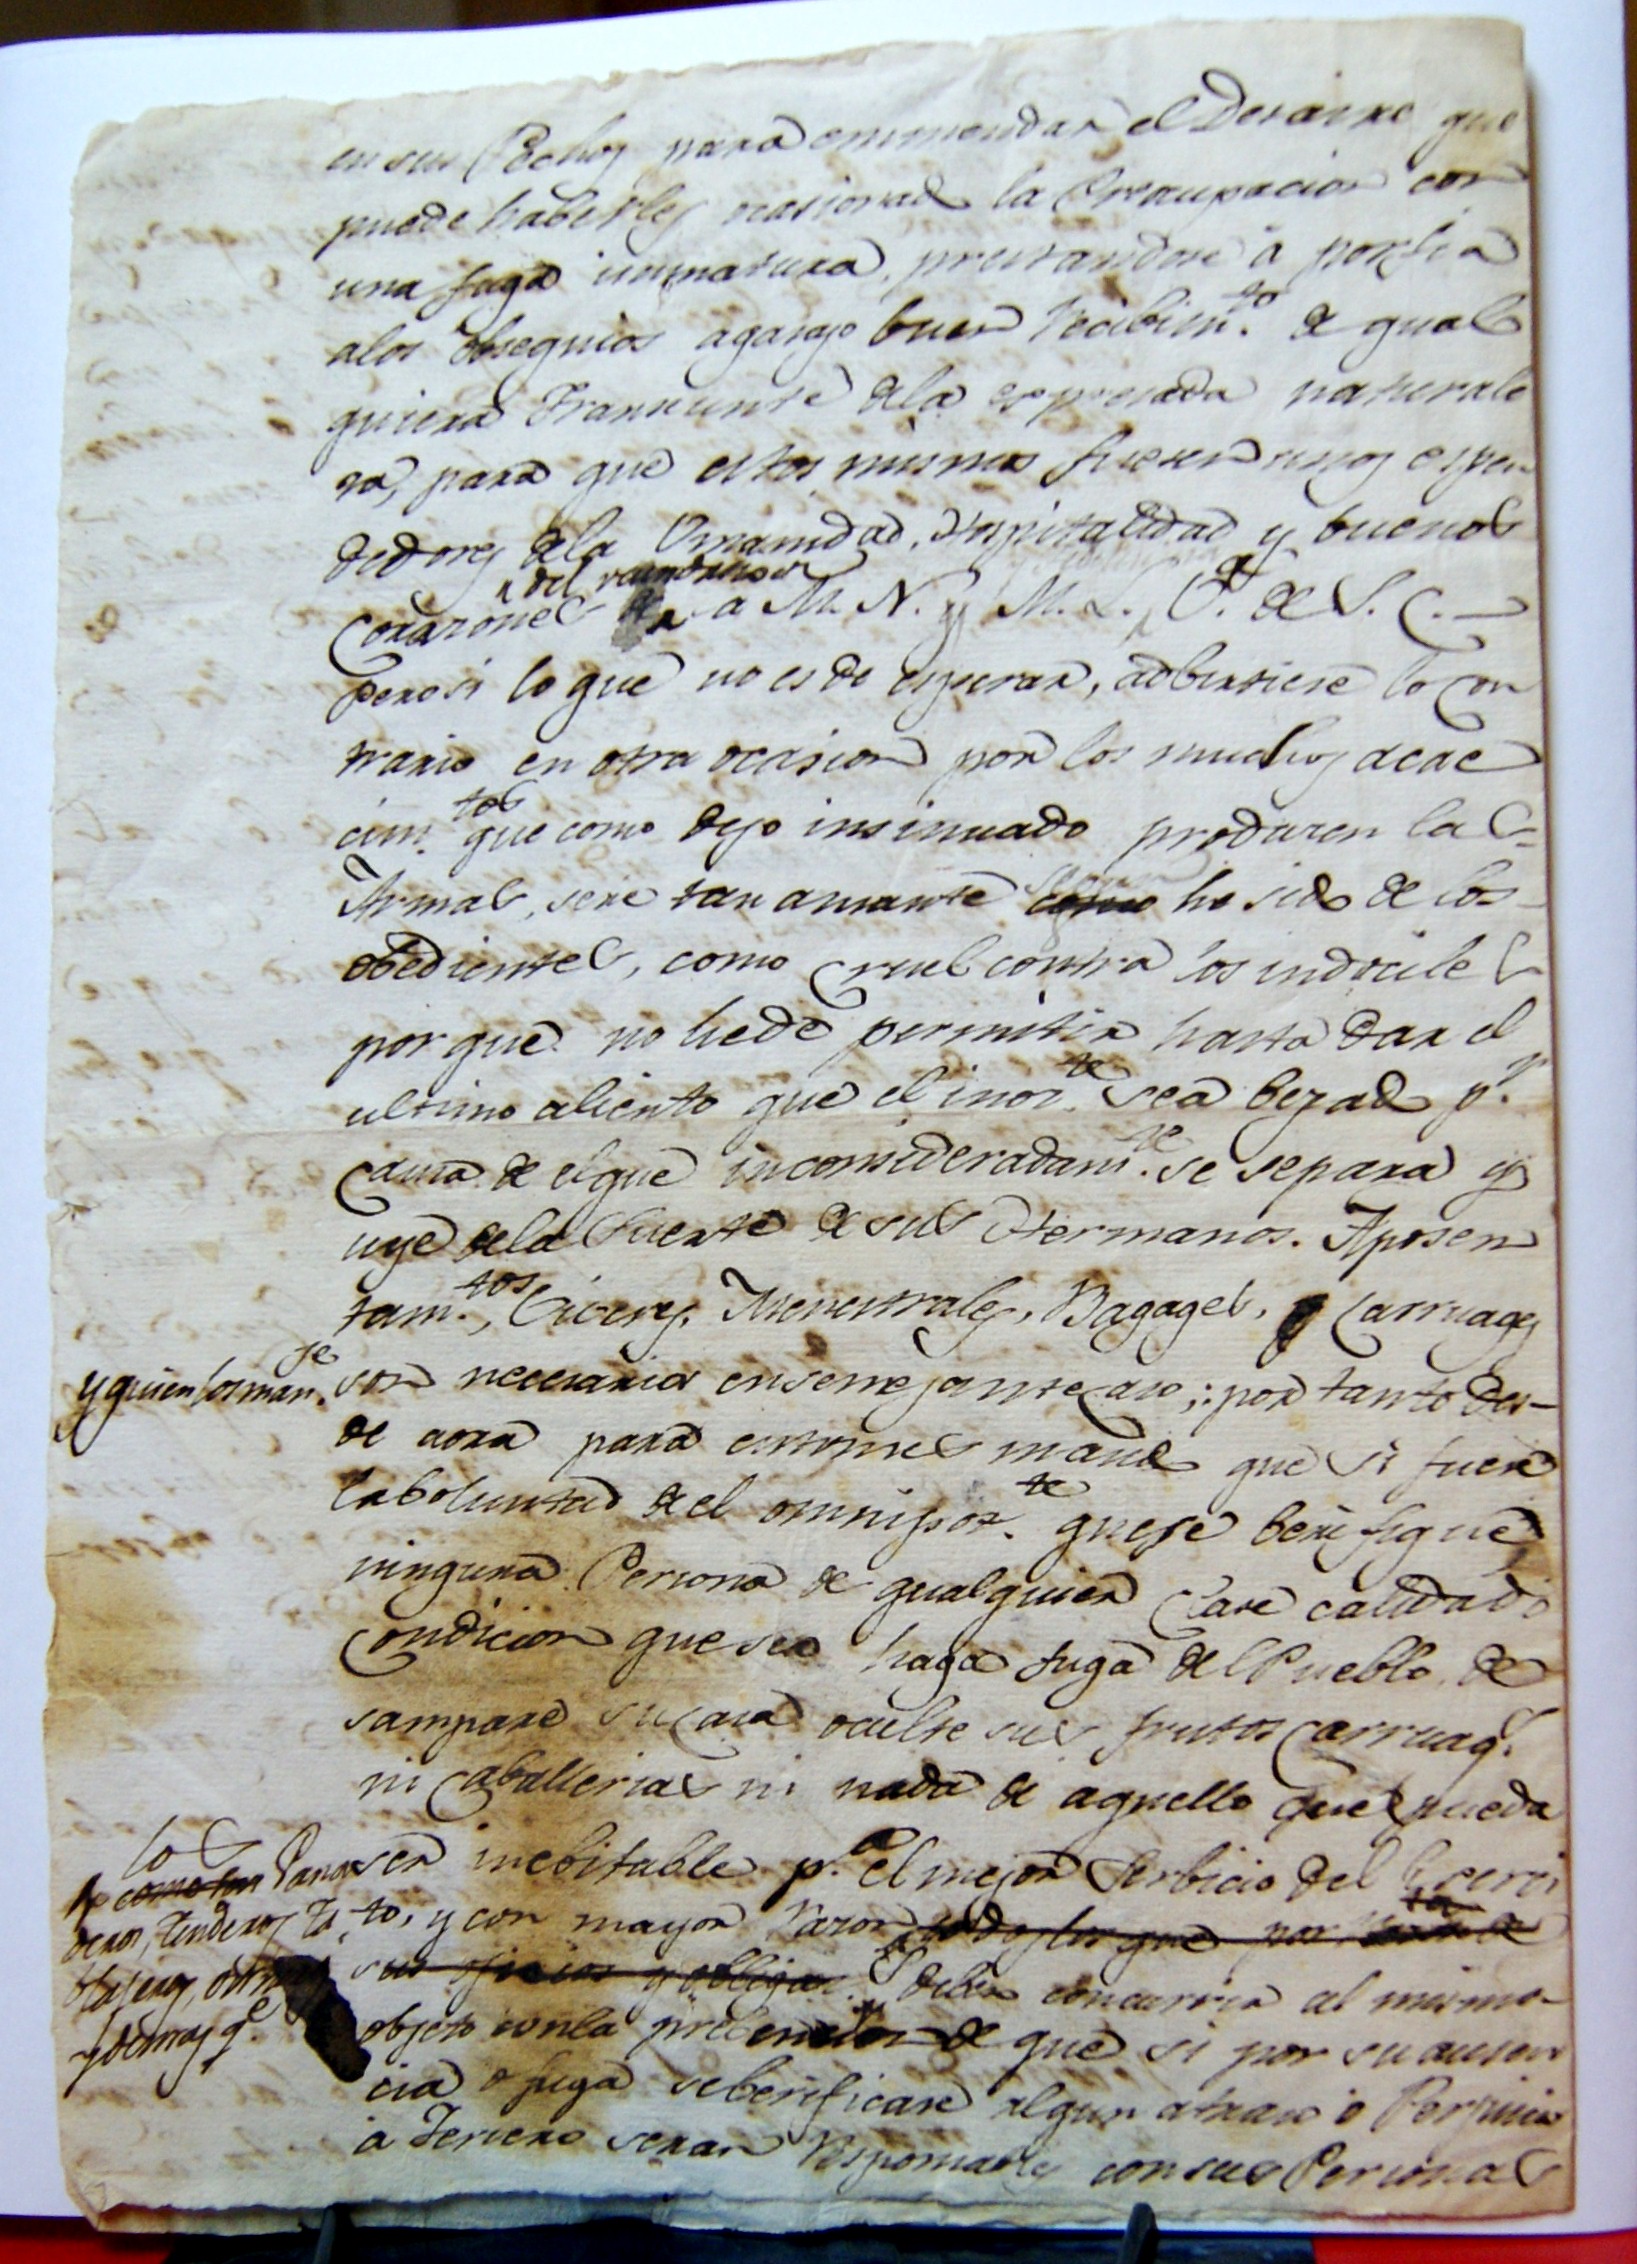 en sus Pechos para enmendar el Desaire que
puede haberles ocasionado la Preocupacion con
una fuga inmatura, prestandose à porfia
a los obsequios agasajo buen Recibim.to de qual
quiera Transeunte de la espresada naturale
za, para que estos mismos fuesen unos espen
dedores de la Umanidad, Hospitalidad y buenos
del vecindario
Corazones a M. N. y M. L. C.d de S. C.
pero si lo que no es de esperar, adbirtiese lo con
trario en otra ocasion por los muchos acae
cim.tos que como dejo insinuado producen las
Armas, sere tan amante como he sido de los
obedientes, como cruel contra los indociles
por que no hede permitir hasta dar el
ultimo aliento que el inoz.te sea bejado p.r
causa de el que inconsideradam.te se separa y
uye de la suerte de sus Hermanos. Aposen
tam.tos, Viveres, Menestrales, Bagages, Carruages
y quien los man.je son necesarios en semejante caso; por tanto des-
de aora para entonces mando que si fuere
la boluntad de el omnipot.te que se berifique
ninguna Persona de qualquier clase calidad o
condicion que sea haga fuga del Pueblo, de
sampare su casa oculte sus frutos carruag.s
ni caballerias ni nada de aquello que pueda
ser inebitable p.a el mejor Serbicio del Exerci
to, y con mayor razon todos los que por
los
como son Pana
deros, Tenderos, Ta
blajeros,
y demas q.e
sus oficios y obligaz.s deben concurrir al mismo
objeto con la prebencion de que si por su ausen
cia o fuga se berificare algun atraso o Perjuicio
à Tercero seran Responsables con sus Personas